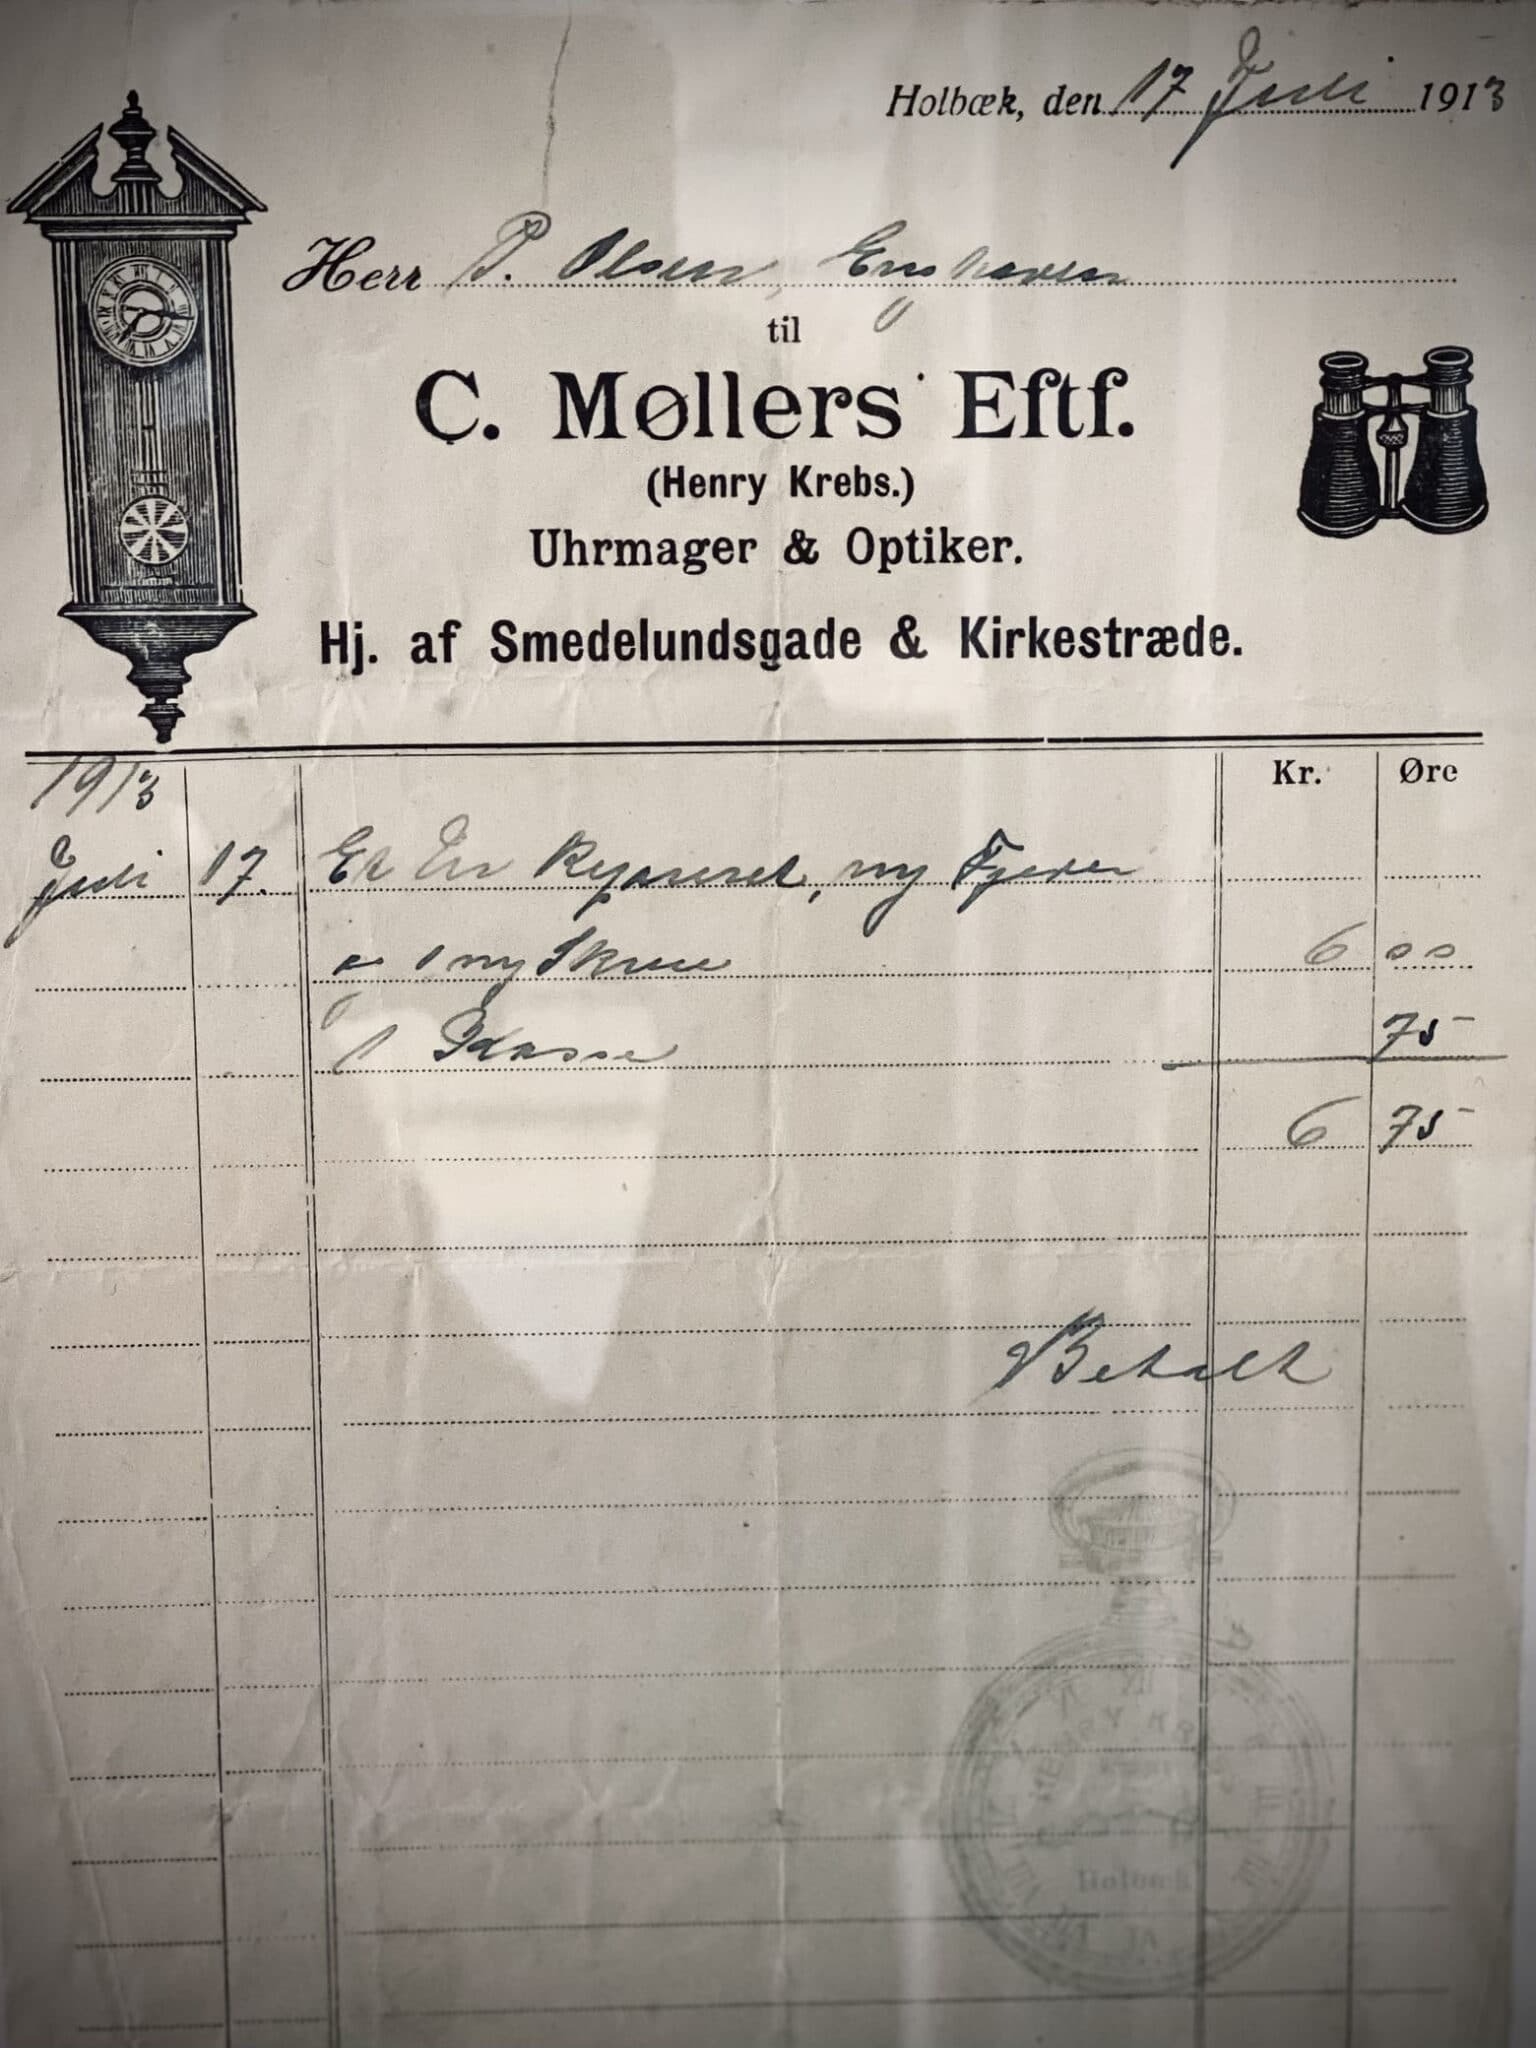 Holbæk, den 17 Juli 1913
Herr P. Olsen, Enghaven
til
C. Møllers Eftf.
(Henry Krebs.)
Uhrmager & Optiker.
Hj. af Smedelundsgade & Kirkestræde.
Kr. Øre
1913
Juli 17. Et Ur Repareret, ny Fjeder
og 1 ny Skrue 6 00
1 Kasse 75
6 75
Betalt
HENRY KREBS
Holbæk